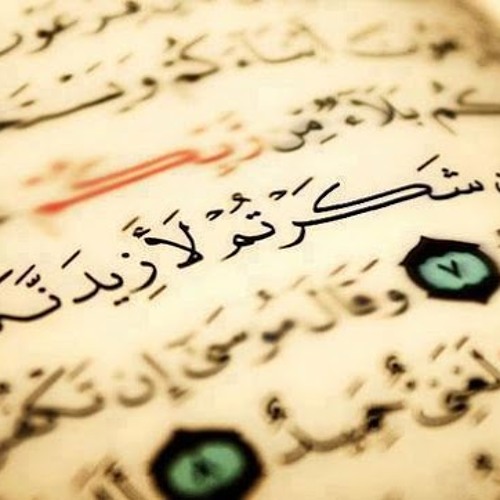 فرعون
أبناءكم ونست
كم بلاء من ربكم
شكرتم لأزيدنكم
٧ وقال موسى إن تكفر
لغني حميد ٨